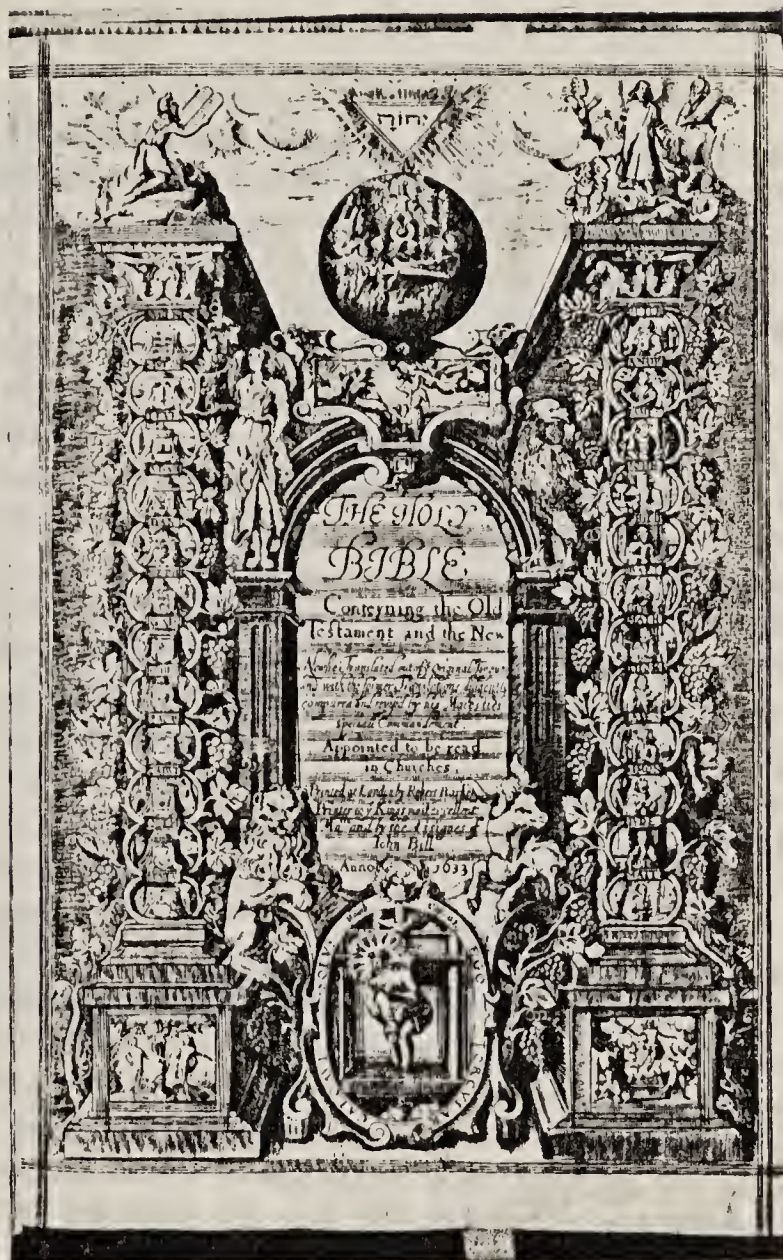 יהוה
THE HOLY
BIBLE
Conteyning the Old
Testament and the New
Newlie Translated out of Original
and with the former Translations diligently
compared and revised by his Maiesties
speciall Commandment
Appointed to be read
in Churches
Printed at London by Robert Barker
Printer to Kings most Excellent
Ma and by the Assignes of
John Bill
Anno 1633